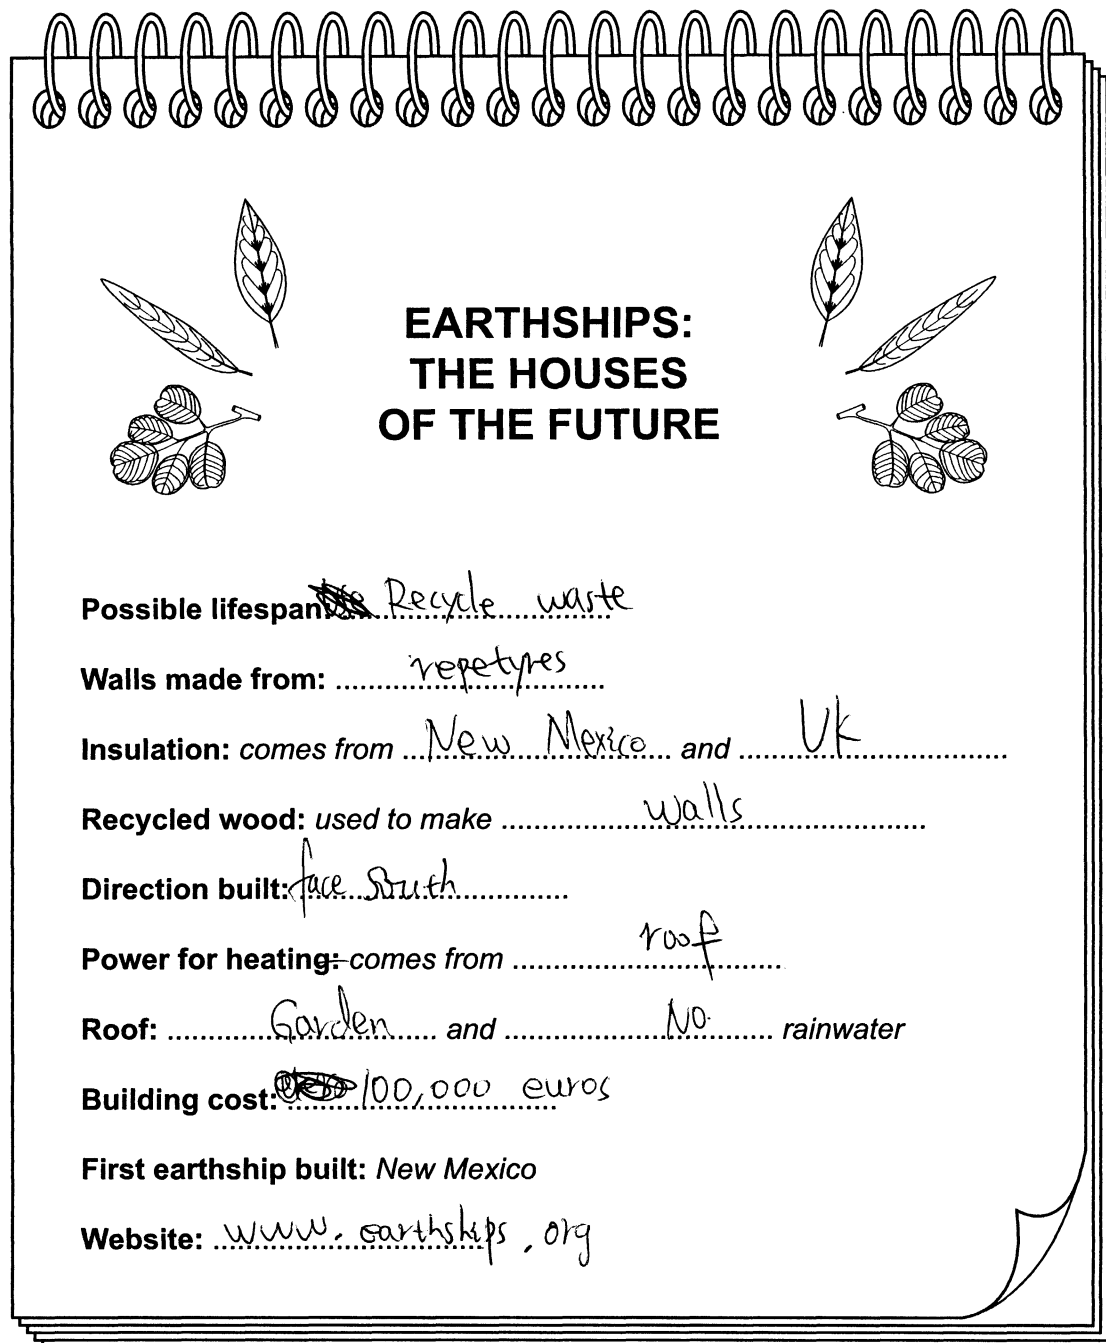 EARTHSHIPS:
THE HOUSES
OF THE FUTURE
Possible lifespan: Recycle waste
Walls made from: repetyres
Insulation: comes from New Mexico and Uk
Recycled wood: used to make walls
Direction built: face South
Power for heating: comes from roof
Roof: Garden and No rainwater
Building cost: 100,000 euros
First earthship built: New Mexico
Website: www.earthships.org